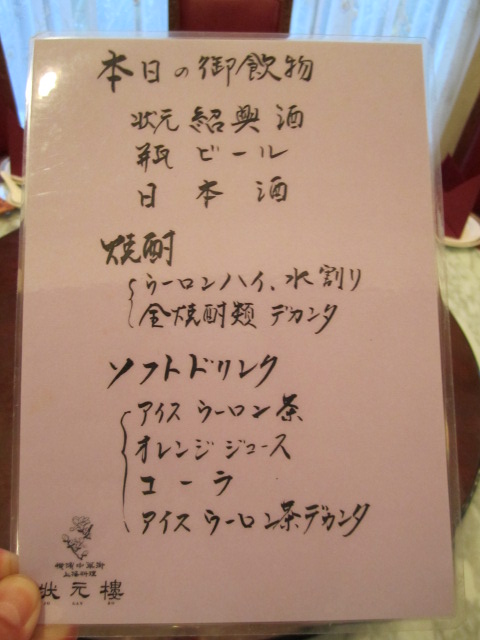 本日の御飲物
状元 紹興酒
瓶 ビール
日本酒
焼酎
ウーロンハイ、水割り
全焼酎類 デカンタ
ソフトドリンク
アイス ウーロン茶
オレンジ ジュース
コーラ
アイス ウーロン茶デカンタ
横濱中華街
上海料理
状元樓